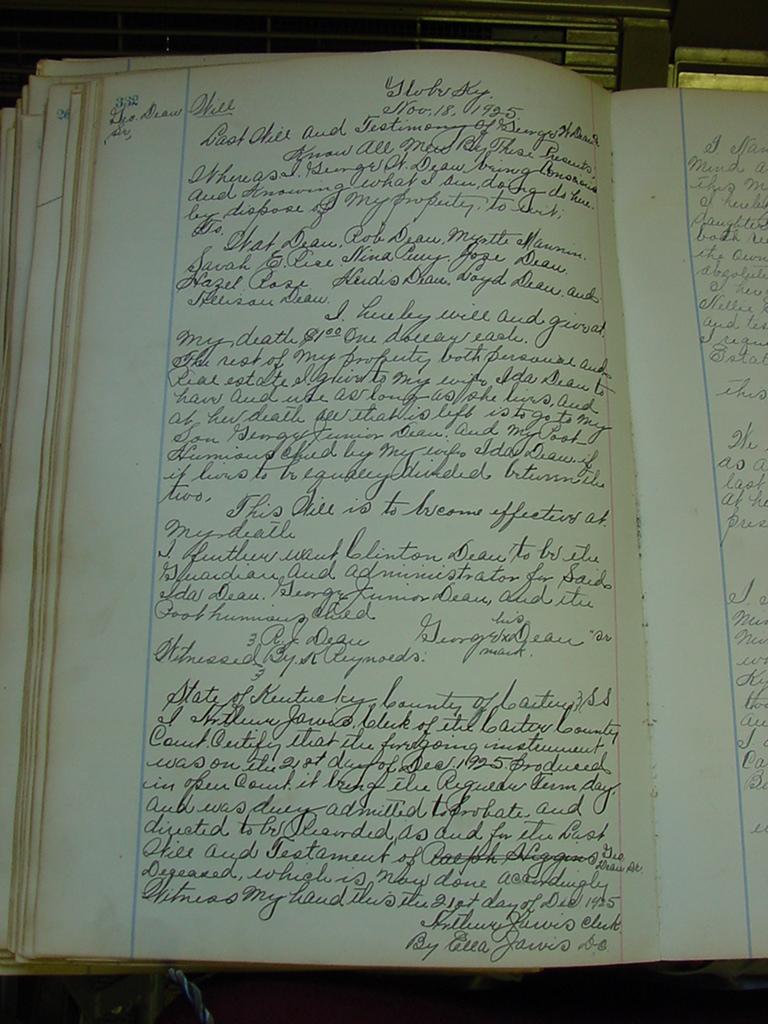 332
Geo. Dean Will
Sr,
Globe Ky.
Nov, 18, 1925
Last Will and Testimony of George W Dean Sr
Know All Men By These Presents,
Whereas I. George W. Dean, being Conscious
and Knowing what I am doing do here
by dispose of My property, to wit;
To,
Wat Dean, Rob Dean, Myrtle Mannin,
Sarah E. Rice Nina Dean.
Hazel Rose. Dean, Loyd Dean, and
Dean.
I. hereby will and give at
My death $1.00 One dollar each.
The rest of My property both personal and
Real estate I give to My wife Ida Dean to
have and use as long as she lives, and
at her death all that is left is to go to My
Son George Junior Dean, and My Post
Humious child by My wife Ida Dean, if
it lives to be equally divided between the
two,
This Will is to become effective at
My death
I further want Clinton Dean to be the
Guardian and administrator for Said
Ida Dean. George Junior Dean, and the
Posthumious child
Dean George his x mark Dean "Sr
Witnessed By, K Reynolds.
State of Kentucky, County of Carter, } SS
I Arthur Jarvis, Clerk of the Carter County
Court, Certify that the foregoing instrument
was on the 21st day of Dec 1925. Produced
in open Court, it being the Regular Term day
and was duly admitted to probate, and
directed to be Recorded, as and for the Last
Will and Testament of Ralph Higgins, Geo Dean Sr.
Deceased, which is now done accordingly
Witness My hand this the 21st day of Dec 1925
Arthur Jarvis Clerk
By Ella Jarvis D.C
I Nan
Mind a
this m
I hereb
daughter
both re
the own
absolute
I here
Nellie
and tes
I requ
Estat
this
We
as a
last
at he
pres